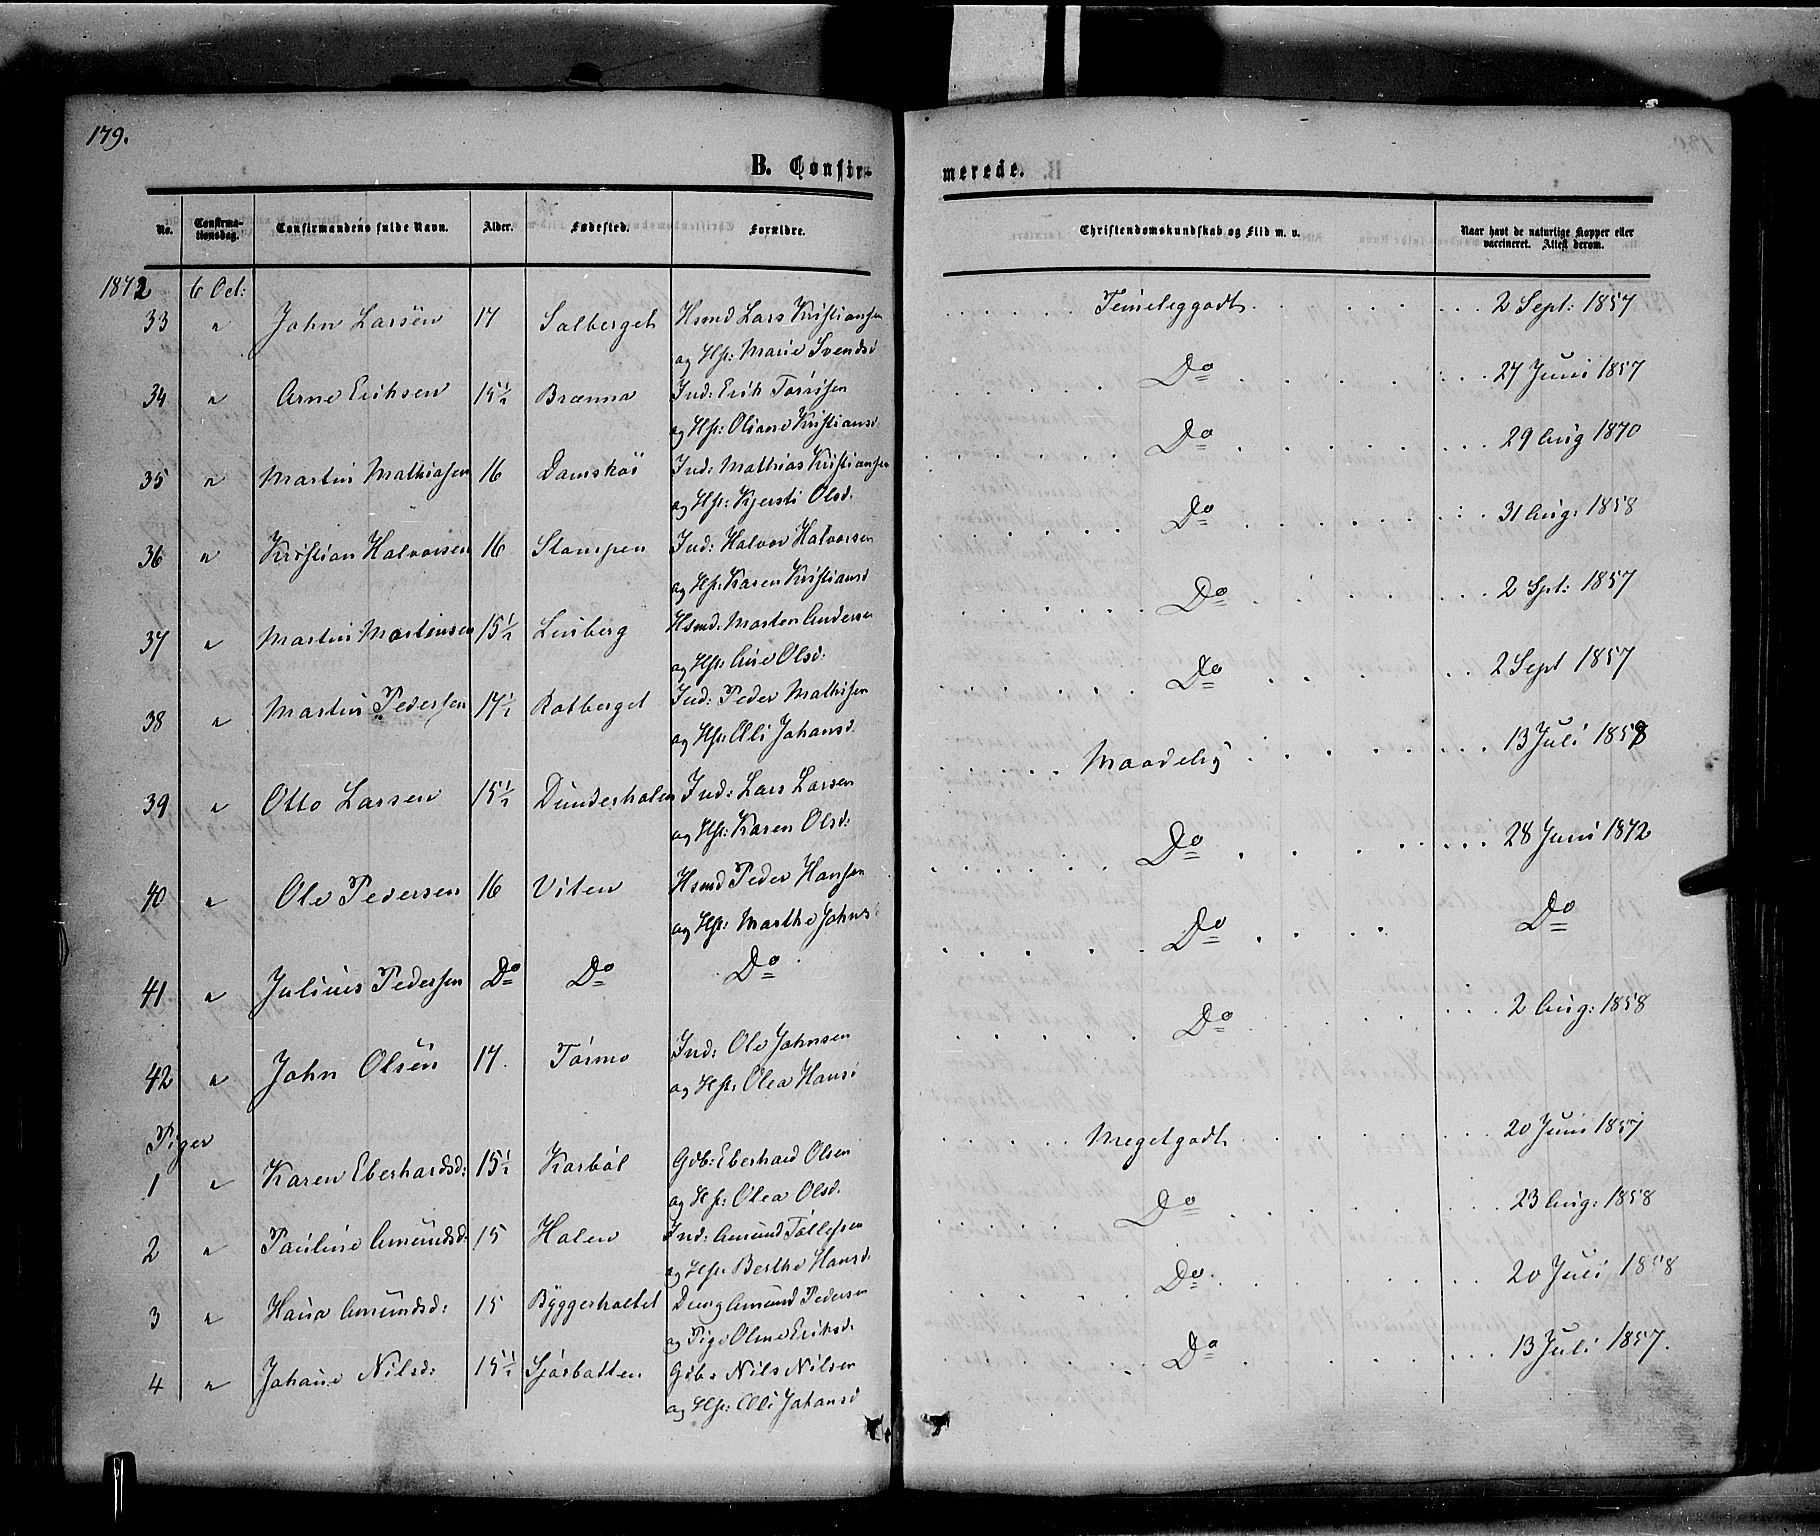 179.
B. Confir-
merede.
No.
Confirma-
tionsdag.
Confirmandens fulde Navn.
Alder.
Fødested.
Forældre.
Christendomskundskab og Flid m. v.
Naar havt de naturlige Kopper eller
vaccineret. Attest derom.
1872 6 Oct:
33 " John Larsen 17 Salberget Hsmd Lars Kristiansen Temeleggodt 2 Sept: 1857
og Hst: Marie Svendsd
34 " Arne Eriksen 15½ Brænna Ind: Erik Torrisen Do 27 Juni 1857
og Hst: Oliane Kristiansd.
35 " Martin Mathiasen 16 Damskou Ind: Mathias Kristiansen Do 29 Aug 1870
og Hst: Kjersti Olsd.
36 " Kristian Halvorsen 16 Stampen Ind: Halvor Halvorsen Do 31 Aug: 1858
og Hst: Karen Kristiansd
37 " Martin Martinsen 15½ Linberg Hsmd: Morten Andersen Do 2 Spt: 1857
og Hst: Ane Olsd:
38 " Martin Pedersen 17½ Rotberget Ind: Peder Mathisen Do 2 Sept 1857
og Hst: Eli Johansd.
39 " Otto Larsen 15½ Dunderholen Ind: Lars Larsen Maadelig 13 Juli 1858
og Hst: Karen Olsd:
40 " Ole Pedersen 16 Viten Hsmd Peder Hansen Do 28 Juni 1872
og Hst: Marthe Johns:
41 " Julius Pedersen Do Do Do Do Do
42 " John Olsen 17. Tørmo Ind: Ole Johnsen Do 2 Aug: 1858
og Hst: Olea Hansd
Piger
1 " Karen Eberhardsd: 15½ Karbøl Gdb: Eberhard Olsen Megetgodt 20 Juni 1857
og Hst: Olea Olsd.
2 " Pauline Amundsd: 15 Holen Ind: Amund Tollefsen Do 23 Aug: 1858
og Hst: Berthe Hansd:
3 " Hana Amundsd: 15 Byggerholtet Ung Amund Pedersen Do 20 Juli 1858
og Pige Oline Eriksd:
4 " Johane Nilsd: 15½ Sjøsbotten Gdb: Nils Nilsen Do 13 Juli 1857.
og Hst: Eli Johansd